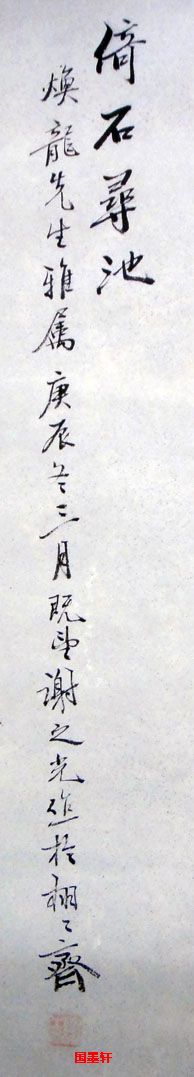 倚石尋池
煥龍先生雅属庚辰冬三月既望謝之光作於栩〻齋
国美轩